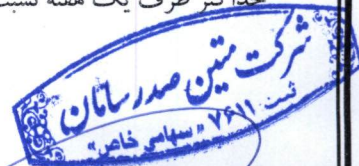 حداکثر ظرف یک هفته نسبت
شرکت متین صدر سامان
ثبت ۷۶۱۱ "سهامی خاص"